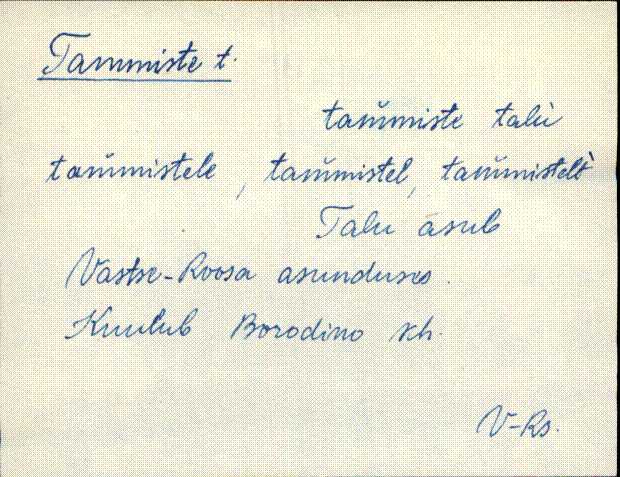 Tammiste t.
tam̆miste talù
tam̆mistele, tam̆mistel, tam̆mistelt̀
Talu asub
Vastse-Roosa asunduses.
Kuulub Borodino kh.
V-Rs.